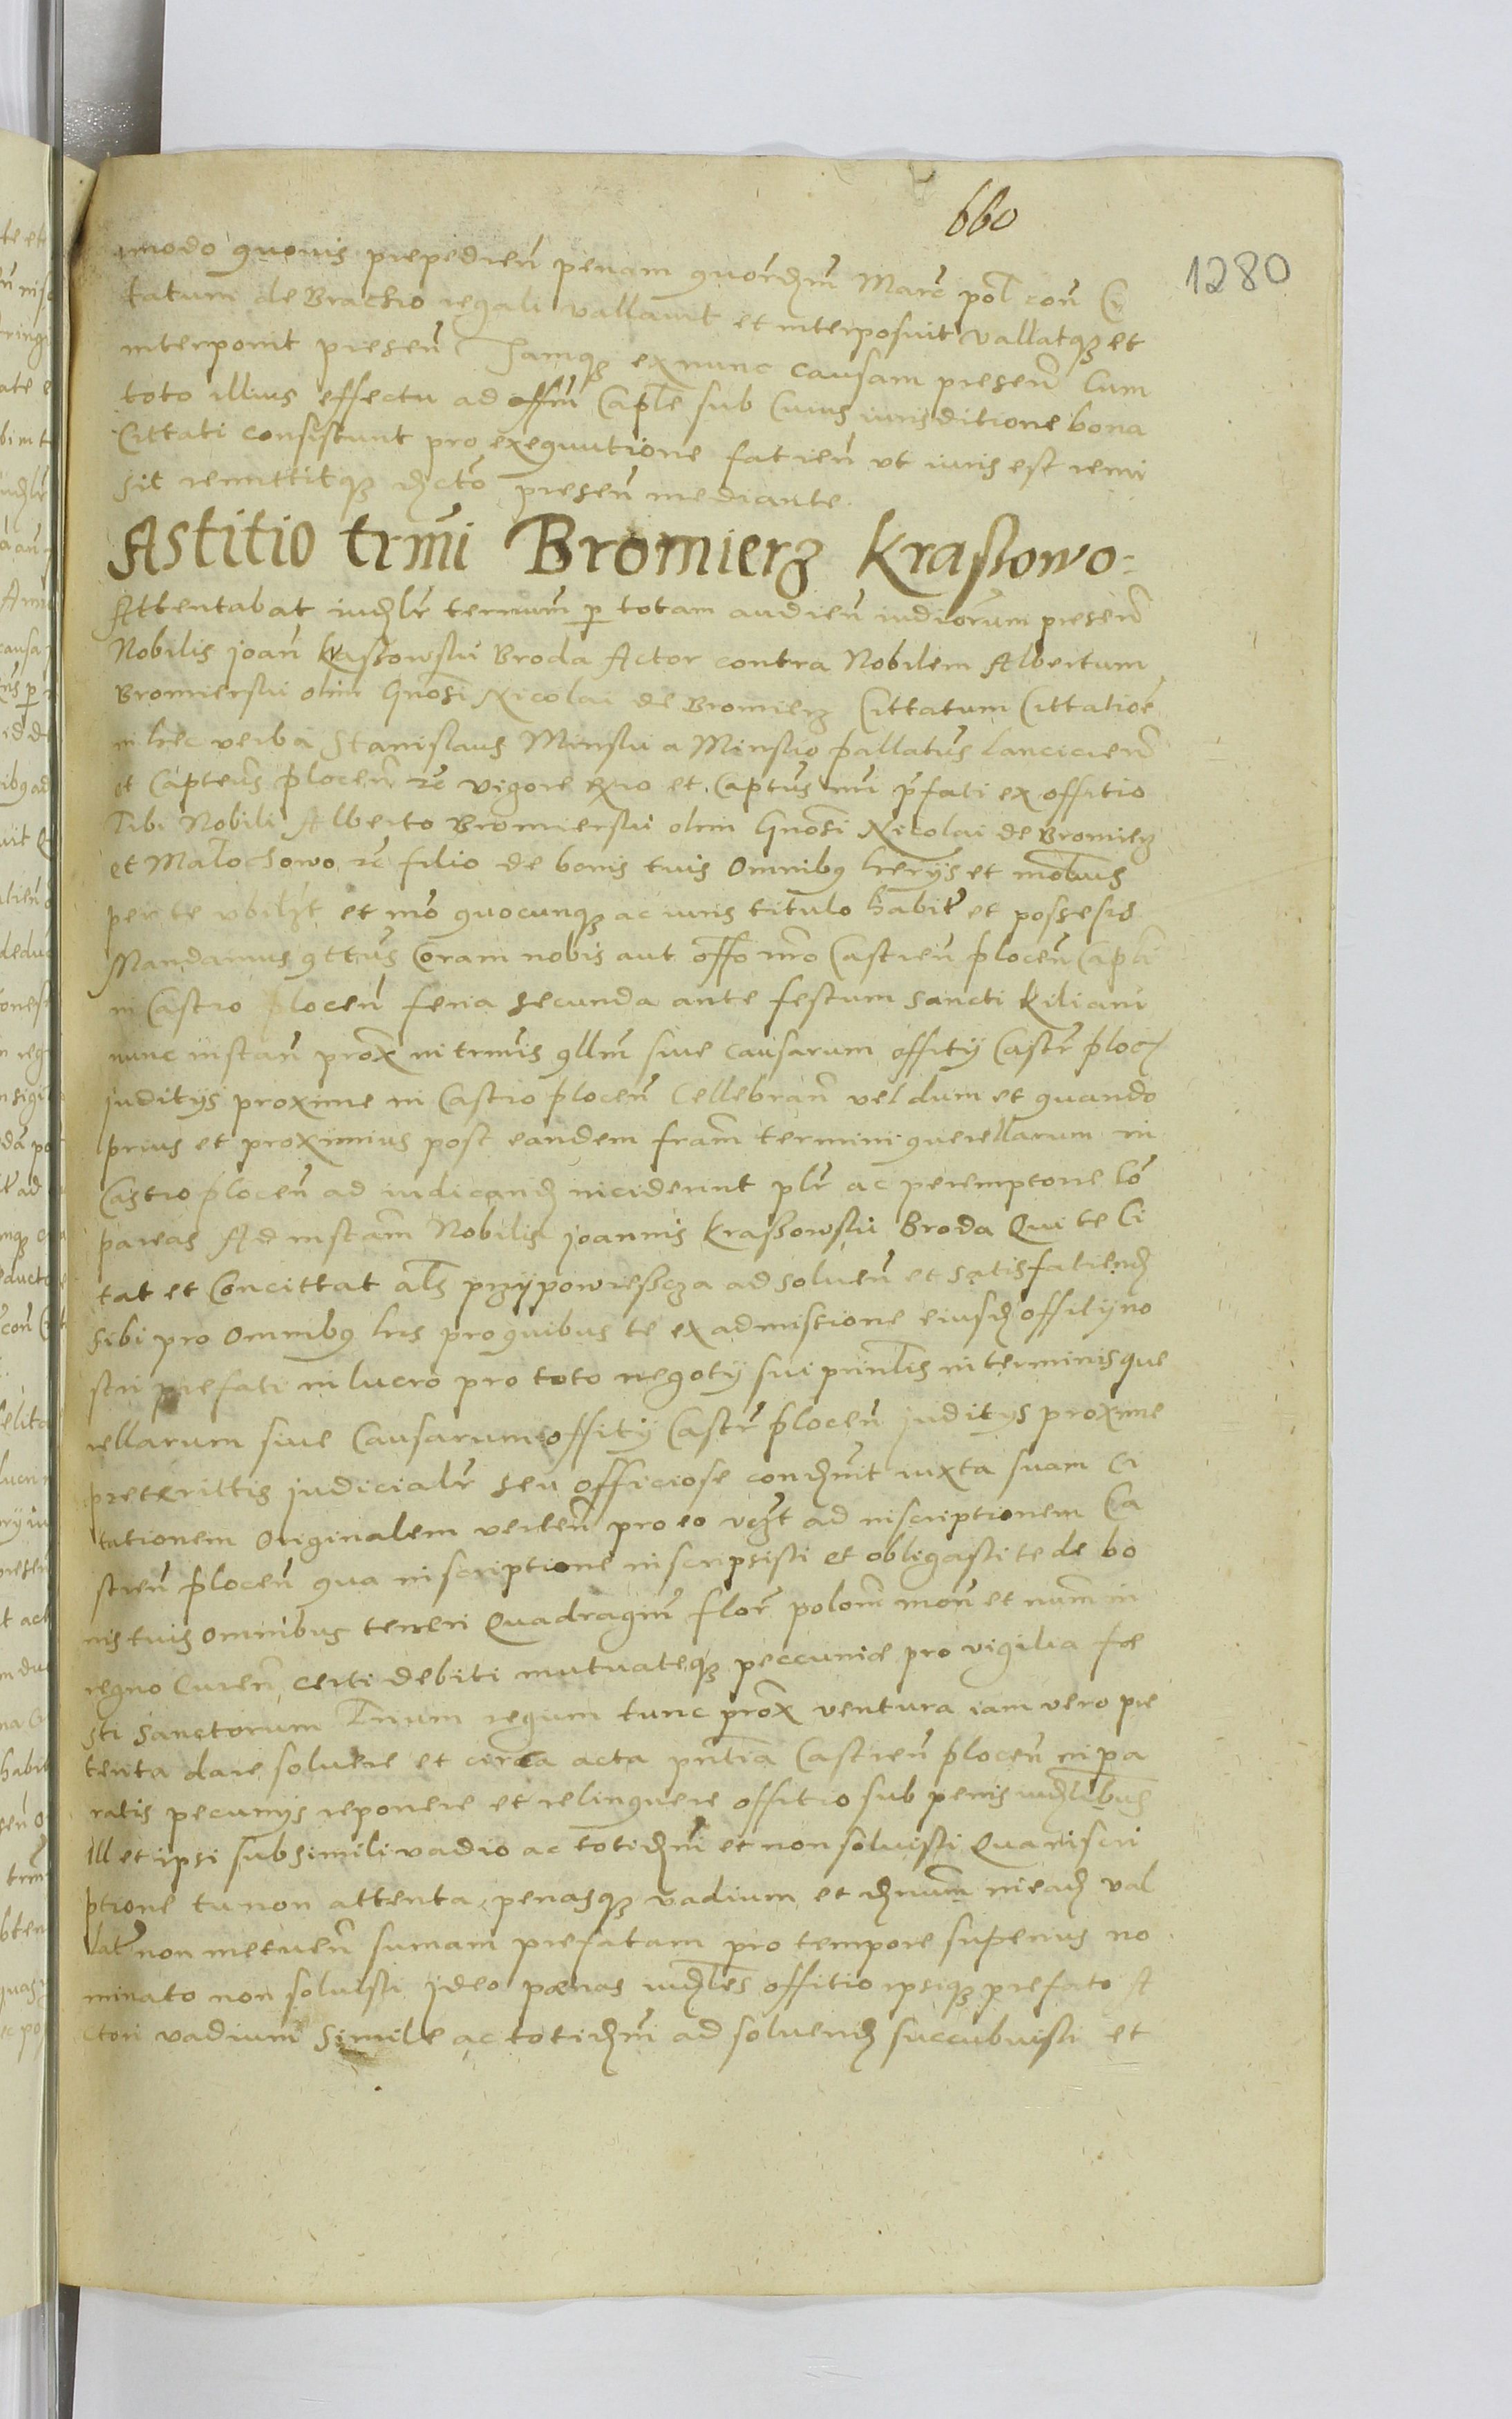 660
1280
modo quovis prepedien̄ penam quordm̄ Marc̄ pol con̄ Ci
tatum de Brachio regali vallavit et interposuit vallatqz et
interponit presen̄ Iamqz ex nunc causam presen̄ Cum
toto illius effectu ad offm̄ Caplē sub Cuius iurisditione bona
Cittati consistunt pro exequutione fatien̄ ut iuris est remi
sit remittitqz dctō presen̄ mediante.
Astitio trmī Bromierz Kraßowo.
Attentabat iudlr̄ ternum p totam audien̄ iudiorum presen̄
Nobilis joan̄ Kraßowski Broda Actor contra Nobilem Albertum
Bromierski olim Gnosi Nicolai de Bromierz Cittatum Cittatiōe
in hec verba Stanislaus Minski a Minsko pallatus̄ Lancicien̄
et Capteus̄ plocen̄ rc̄ vigore et Captus̄ mī p̄fati ex offitio
Tibi Nobili Alberto Bromierski olim Gnosi Nicolai de Bromierz
et Malochowo rc̄ filio de bonis tuis Omnibq herijs et mobius
per te ubilzt et mō quocunqz ac iuris titulo habit̄ et possesis
Mandamus qttus̄ Coram nobis aut offō nrō Castren̄ plocen̄ Capli
in Castro plocen̄ feria secunda ante festum sancti Kiliani
nunc instan̄ prox̄ in trmīs qllm̄ sive causarum offitij Castr̄ ploc
juditijs proxime in Castro plocen̄ Cellebran̄ vel dum et quando
prius et proximius post eandem fram̄ termini querellarum in
Castro plocen̄ ad iudicand inciderint plr̄ ac peremptorie Cō
pareas Ad instam̄ Nobilis joannis Kraßowski Broda Qui te Ci
tat et Concittat als przypowießcza ad solven̄ et satisfatiend
sibi pro Omnibq his pro quibus te ex admissione eiusd offitij no
stri prefati in lucro pro toto negotij sui prinlis in terminis que
rellarum sive Causarum offitij Castr̄ plocen̄ juditijs proxime
preterittis judicialr̄ seu officiose condnit iuxta suam Ci
tationem Originalem verten̄ pro eo vczt ad inscriptionem Ca
stren̄ plocen̄ qua inscriptione inscripsisti et obligasti te de bo
nis tuis Omnibus teneri Quadragin̄ flor̄ polom̄ mon̄ et num̄ in
regno Curen̄ certi debiti mutuateqz peccuniæ pro vigilia fe
sti Sanctorum Trium regum tunc prox̄ ventura iam vero pre
terita dare solvere et circa acta pn̄tia Castren̄ plocen̄ in pa
ratis pecunijs reponere et relinquere offitio sub penis iudlibus
Ill et ipsi sub simili vadio ac totidm̄ et non solvisti Qua inscri
ptione tu non attenta penasqz vadium et dnum̄ in ead val
lat̄ non metuen̄ sumam prefatam pro tempore superius no
minato non solvisti jdeo pœnas iudles offitio ipsiqz prefato A
ctori vadium simile ac totidm̄ ad solvend succubuisti et